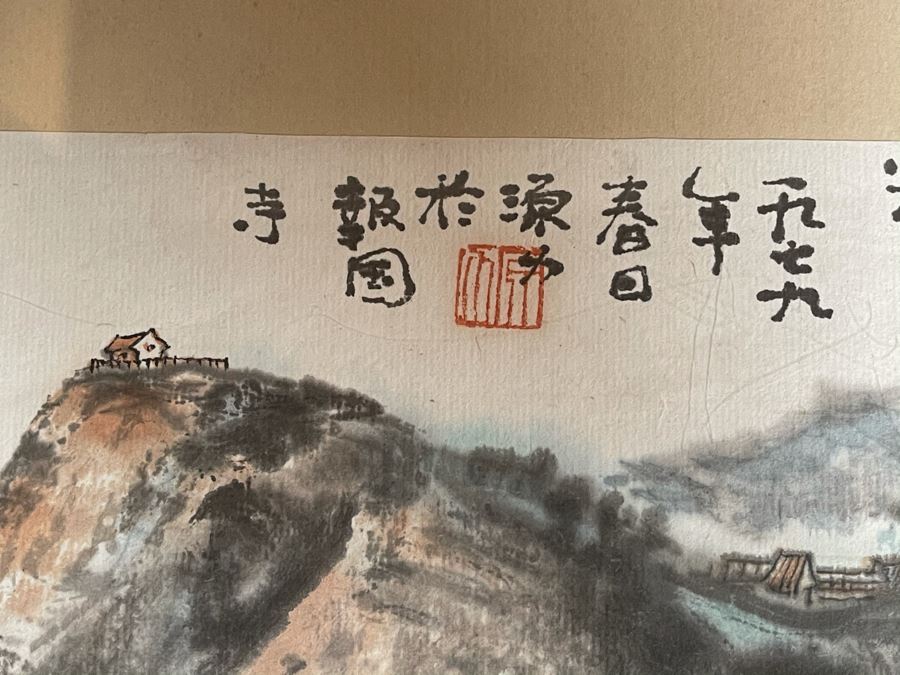 一九七九
年
春日
源
於
報国
寺